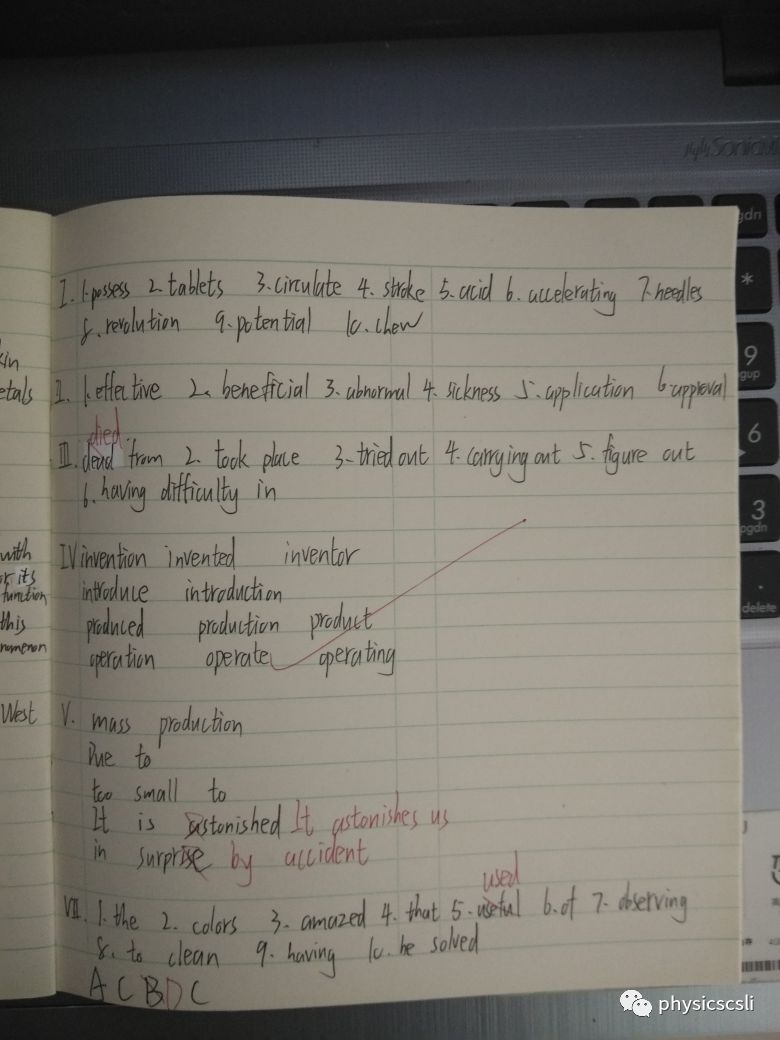 I. 1.possess 2.tablets 3.circulate 4.stroke 5.acid 6.accelerating 7.needles
8.revolution 9.potential 10.chew
II. 1.effective 2.beneficial 3.abnormal 4.sickness 5.application 6.approval
died
III. dead from 2.took place 3.tried out 4.carrying out 5.figure out
6.having difficulty in
IV invention invented inventor
introduce introduction
produced production product
operation operate operating
V. mass production
Due to
too small to
It is astonished It astonishes us
in surprise by accident
used
VII. 1.the 2.colors 3.amazed 4.that 5.useful 6.of 7.observing
8.to clean 9.having 10.be solved
A C B D C
kin
etals
with
or its
function
this
nomenon
West
pgdn
*
9
pgup
6
3
pgdn
.
delete
physicscsli